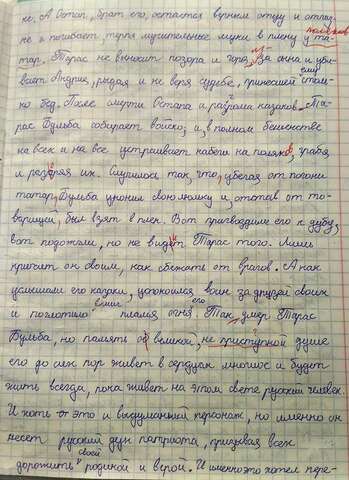 но. А Остап, брат его, остается верным отцу и отчиз-
не и погибает, терпя мучительные муки в плену у та-
поляков
тар. Тарас не выносит позора и горя за сына и уби-
вает Андрия, рыдая и не веря судьбе, принесшей столь-
ему
ко бед. После смерти Остапа и разгрома казаков Та-
рас Бульба собирает войско, и в полном бешенстве
на всех и на все устраивает набеги на поляков, грабя
и разоряя их. Случилось так, что, убегая от погони
татар, Бульба уронил свою люльку и, отстав от то-
варищей, был взят в плен. Вот пригвоздили его к дубу,
вот подожгли, но не видит Тарас того. Лишь
кричит он своим, как сбежать от врагов. А как
услышали его казаки, успокоился воин за друзей своих
и поглотило пламя огня его. Так умер Тарас
Бульба, но память о великой, не приступной душе
его до сих пор живет в сердцах многих и будет
жить всегда, пока живет на этом свете русский человек.
И хоть это и выдуманный персонаж, но именно он
несет русский дух патриота, призывая всех
своей
дорожить родиной и верой. И именно это хотел пере-